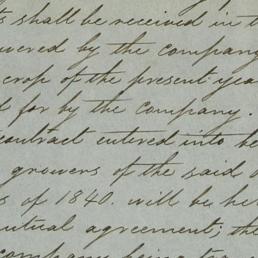 s shall be received in t
wered by the company
crop of the present yea
d for by the company.
contract entered into be
growers of the said
s of 1840. will be he
utual agreement; the
company being to